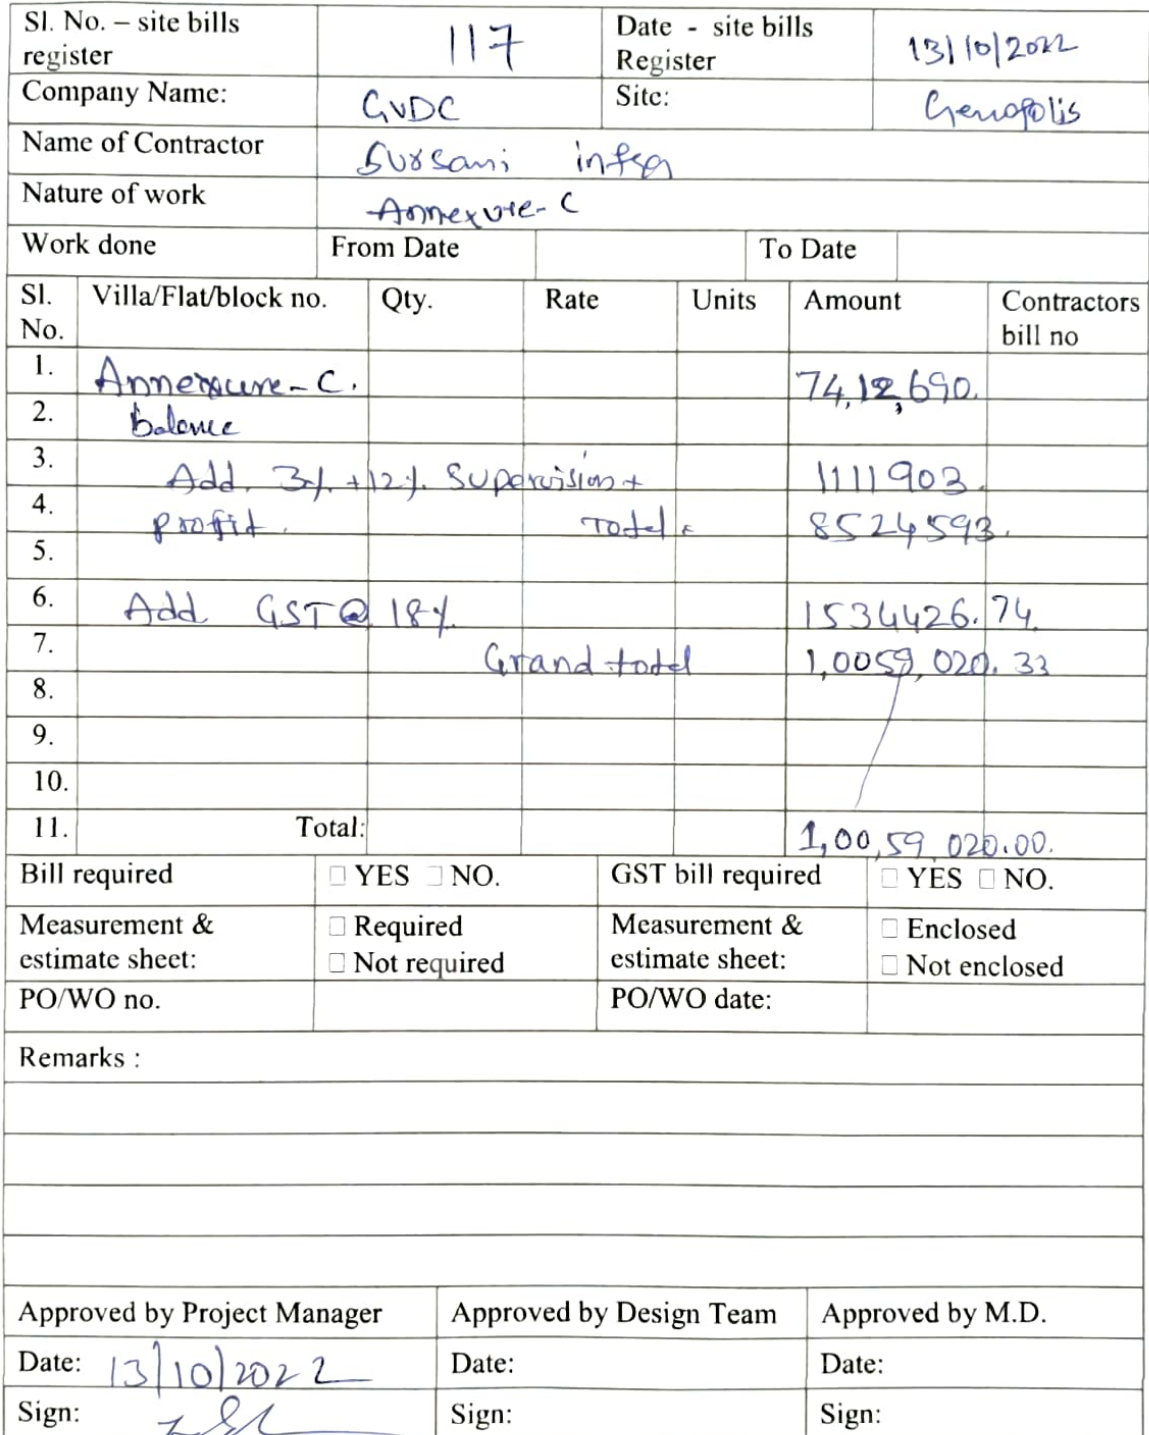 Sl. No. – site bills register 117 Date - site bills Register 13/10/2022
Company Name: GVDC Site: Genopolis
Name of Contractor Sursani infra
Nature of work Annexure-C
Work done From Date To Date
Sl. No. Villa/Flat/block no. Qty. Rate Units Amount Contractors bill no
1. Annexure-C. 74,12,690.
2. balance
3. Add. 3%. +12%. Supervision + 1111903.
4. profit. Total = 8524593.
5.
6. Add GST@ 18% 1534426.74.
7. Grand total 1,0059,020.33
8.
9.
10.
11. Total: 1,00,59,020.00.
Bill required □ YES □ NO. GST bill required □ YES □ NO.
Measurement & estimate sheet: □ Required □ Not required Measurement & estimate sheet: □ Enclosed □ Not enclosed
PO/WO no. PO/WO date:
Remarks :
Approved by Project Manager Approved by Design Team Approved by M.D.
Date: 13/10/2022 Date: Date:
Sign: Sign: Sign: